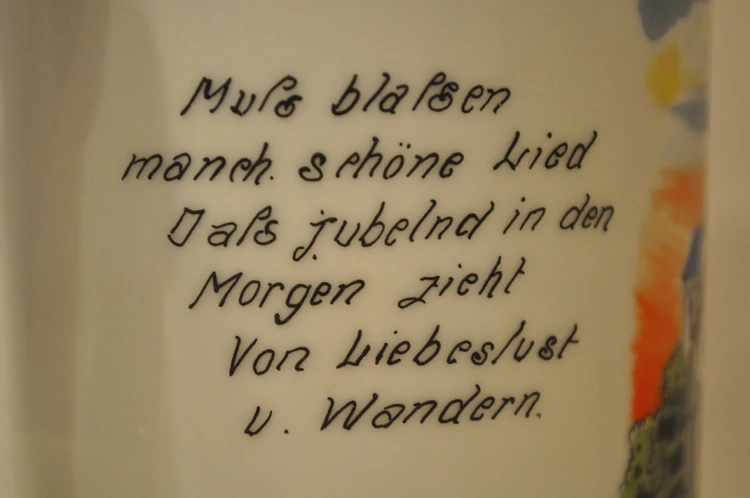 Muſs blaſsen
manch. schöne Lied
Daſs jubelnd in den
Morgen zieht
Von Liebeslust
u. Wandern.